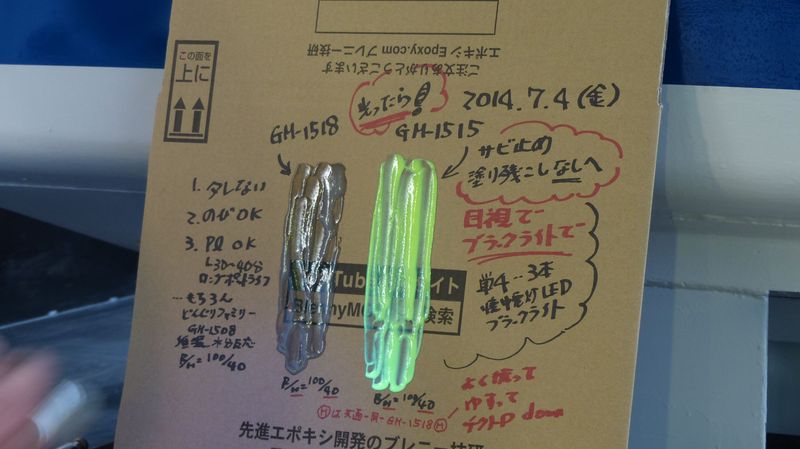 ご注文ありがとうございます
エポキシ Epoxy.com ブレニー技研
この面を
上に
光ったら!
2014.7.4(金)
GH-1518
GH-1515
サビ止め
塗り残こしなしへ
1. タレない
2. のびOK
3. PQ OK
ロングポットライフ
…もちろん
どんぐりファミリー
GH-1508
B/H=100/40
目視で
ブラックライトで
単4…3本
懐中電灯LED
ブラックライト
Tube
イト
检索
B/H=100/40
B/H=100/40
GH-1518
よく振って
ゆすって
down
先進エポキシ開発のブレニー技研